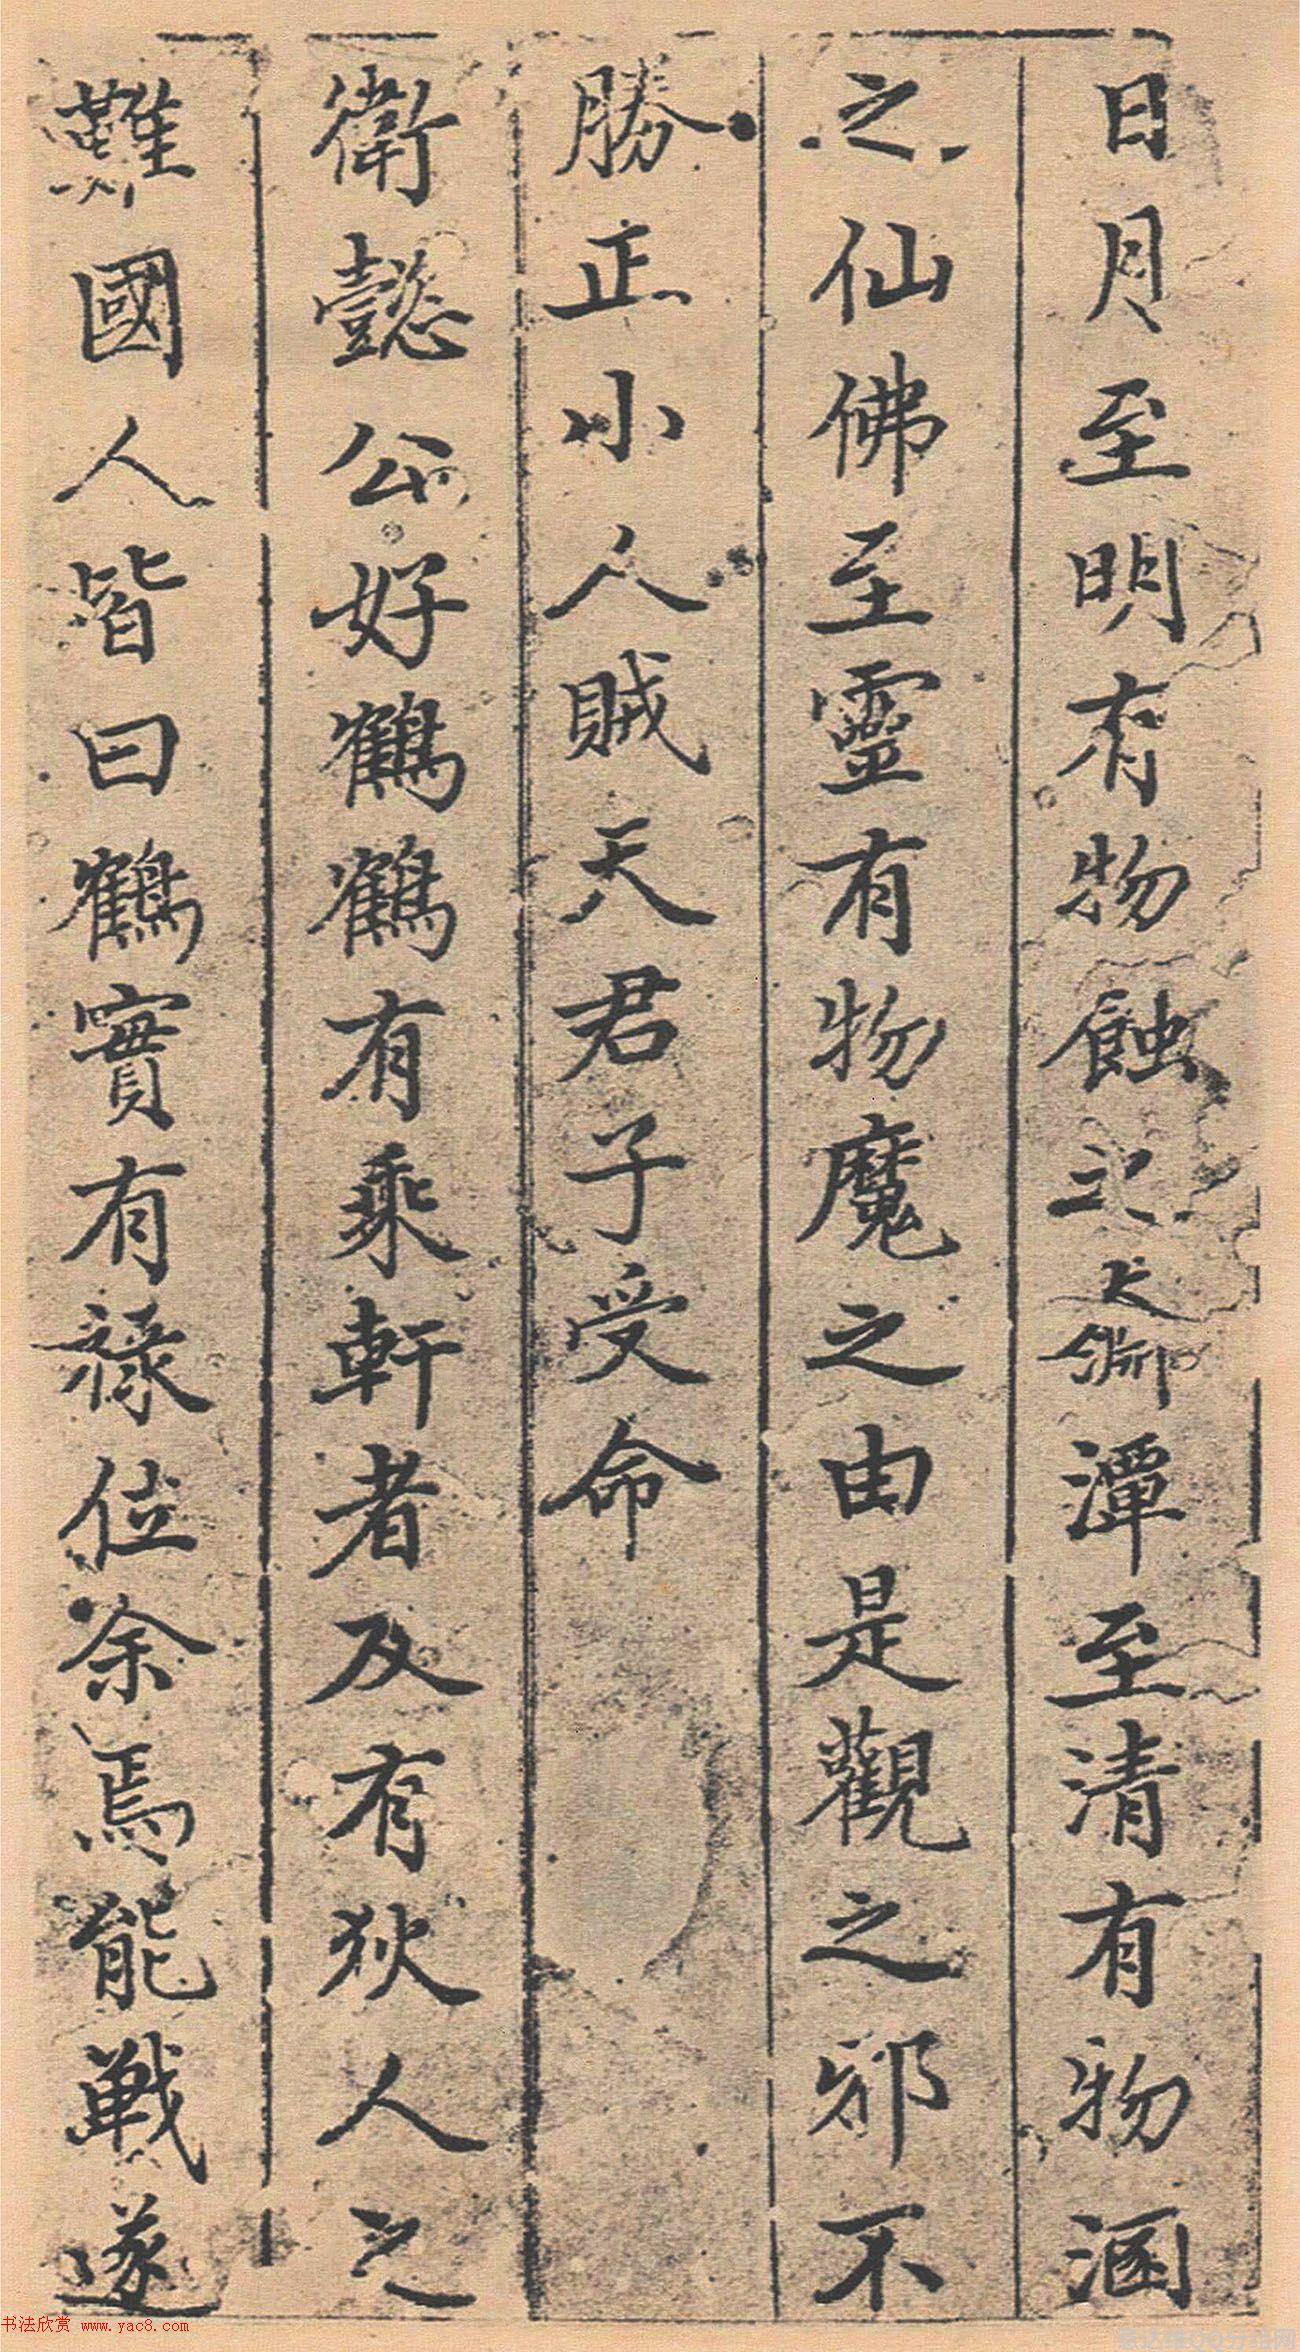 日月至明有物蝕之大淵潭至清有物涵
之仙佛至靈有物魔之由是觀之邪不
勝正小人賊天君子受命
衛懿公好鶴鶴有乘軒者及有狄人之
難國人皆曰鶴實有祿位余焉能戰遂
书法欣赏 www.yac8.com